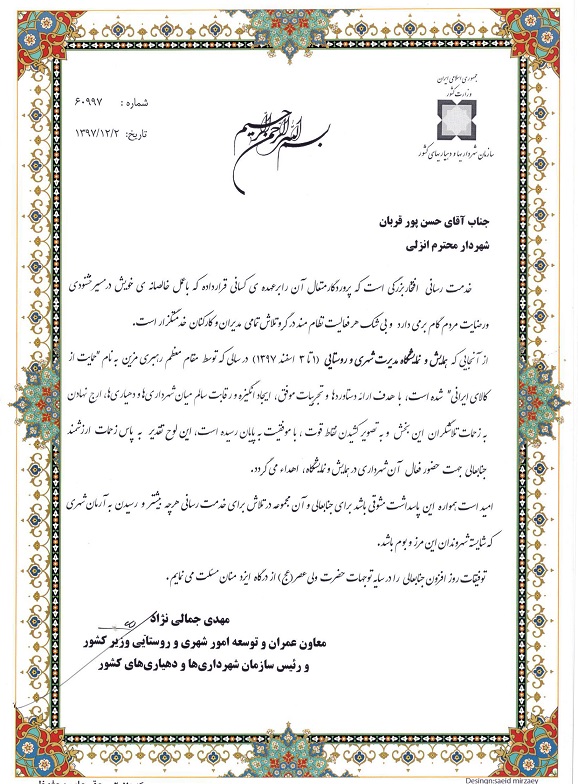 جمهوری اسلامی ایران
وزارت کشور
سازمان شهرداریها و دهیاریهای کشور
شماره : ۶۰۹۹۷
تاریخ: ۱۳۹۷/۱۲/۲
بسم الله الرحمن الرحیم
جناب آقای حسن پور قربان
شهردار محترم انزلی
خدمت رسانی افتخار بزرگی است که پروردگار متعال آن را برعهده ی کسانی قرار داده که با عمل خالصانه ی خویش در مسیر خشنودی
و رضایت مردم گام برمی دارد و بی شک هر فعالیت نظام مند در گرو تلاش تمامی مدیران و کارکنان خدمتگزار است.
از آنجایی که همایش و نمایشگاه مدیریت شهری و روستایی (۱ تا ۳ اسفند ۱۳۹۷) در سالی که توسط مقام معظم رهبری مزین به نام "حمایت از
کالای ایرانی" شده است، با هدف ارائه دستاوردها و تجربیات موفق، ایجاد انگیزه و رقابت سالم میان شهرداری ها و دهیاری ها، ارج نهادن
به زحمات تلاشگران این بخش و به تصویر کشیدن نقاط قوت ، با موفقیت به پایان رسیده است، این لوح تقدیر به پاس زحمات ارزشمند
جنابعالی جهت حضور فعال آن شهرداری در همایش و نمایشگاه، اهداء می گردد.
امید است همواره این پاسداشت مشوقی باشد برای جنابعالی و آن مجموعه در تلاش برای خدمت رسانی هرچه بیشتر و رسیدن به آرمان شهری
که شایسته شهروندان این مرز و بوم باشد.
توفیقات روز افزون جنابعالی را در سایه توجهات حضرت ولی عصر (عج) از درگاه ایزد منان مسئلت می نمایم.
مهدی جمالی نژاد
معاون عمران و توسعه امور شهری و روستایی وزیر کشور
و رئیس سازمان شهرداری‌ها و دهیاری‌های کشور
Desingn:saeid mirzaey